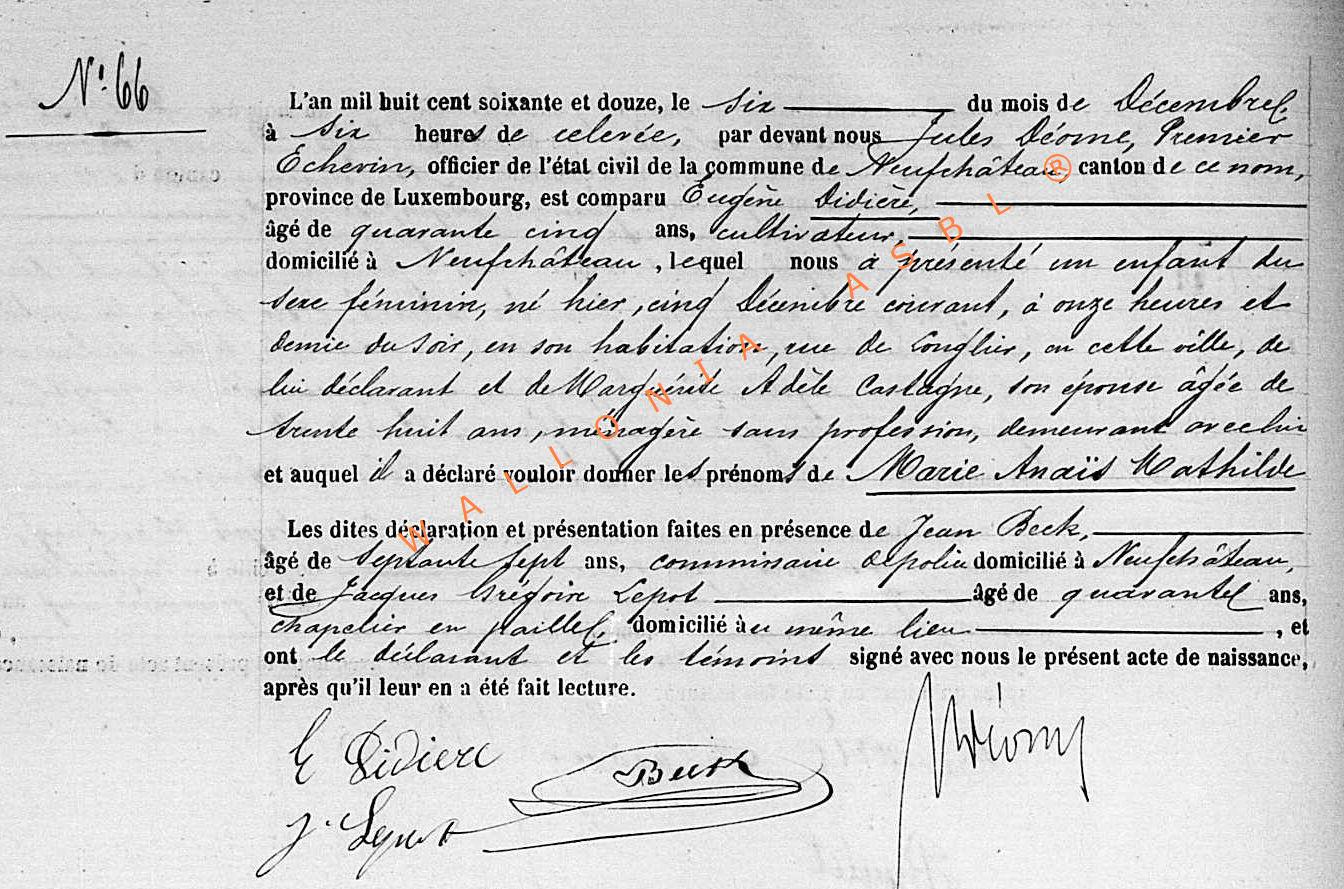 Nº 66
L'an mil huit cent soixante et douze, le six du mois de Décembre
à six heures de relevée, par devant nous Jules Déome, Premier
Echevin, officier de l'état civil de la commune de Neufchâteau, canton de ce nom,
province de Luxembourg, est comparu Eugène Didière,
âgé de quarante cinq ans, cultivateur,
domicilié à Neufchâteau, lequel nous a présenté un enfant du
sexe féminin, né hier, cinq Décembre courant, à onze heures et
demie du soir, en son habitation, rue de Longlier, en cette ville, de
lui déclarant et de Marguérite Adèle Castagne, son épouse âgée de
trente huit ans, ménagère sans profession, demeurant avec lui
et auquel il a déclaré vouloir donner les prénoms de Marie Anaïs Mathilde
Les dites déclaration et présentation faites en présence de Jean Beck,
âgé de septante sept ans, commissaire de police domicilié à Neufchâteau,
et de Jacques Grégoire Lepot âgé de quarante ans,
chapelier en paille, domicilié au même lieu, et
ont le déclarant et les témoins signé avec nous le présent acte de naissance,
après qu'il leur en a été fait lecture.
E Didière
Beck
J. Lepot
JDéome
WALLONIA ASBL ®